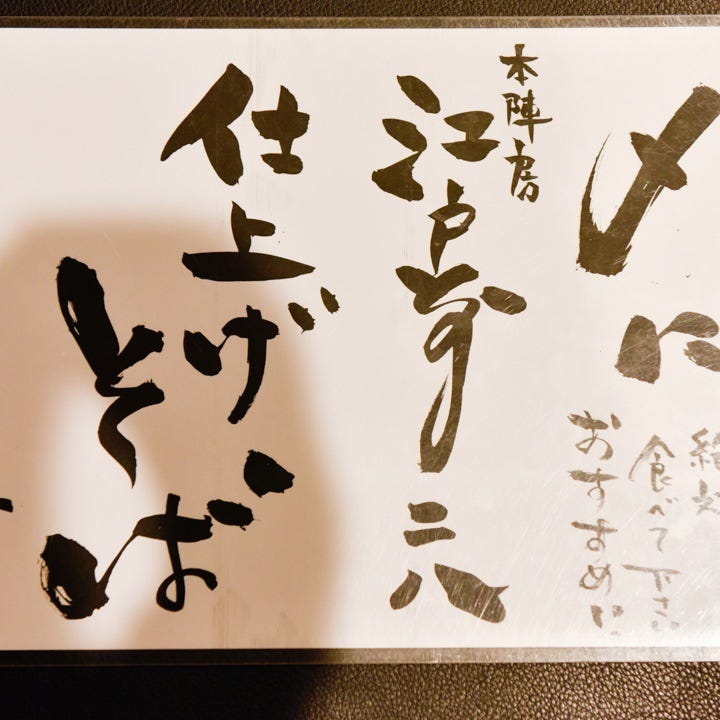 〆に
絶対
食べて下さい
おすすめ!!
本陣房
江戸前二八
仕上げ
そば